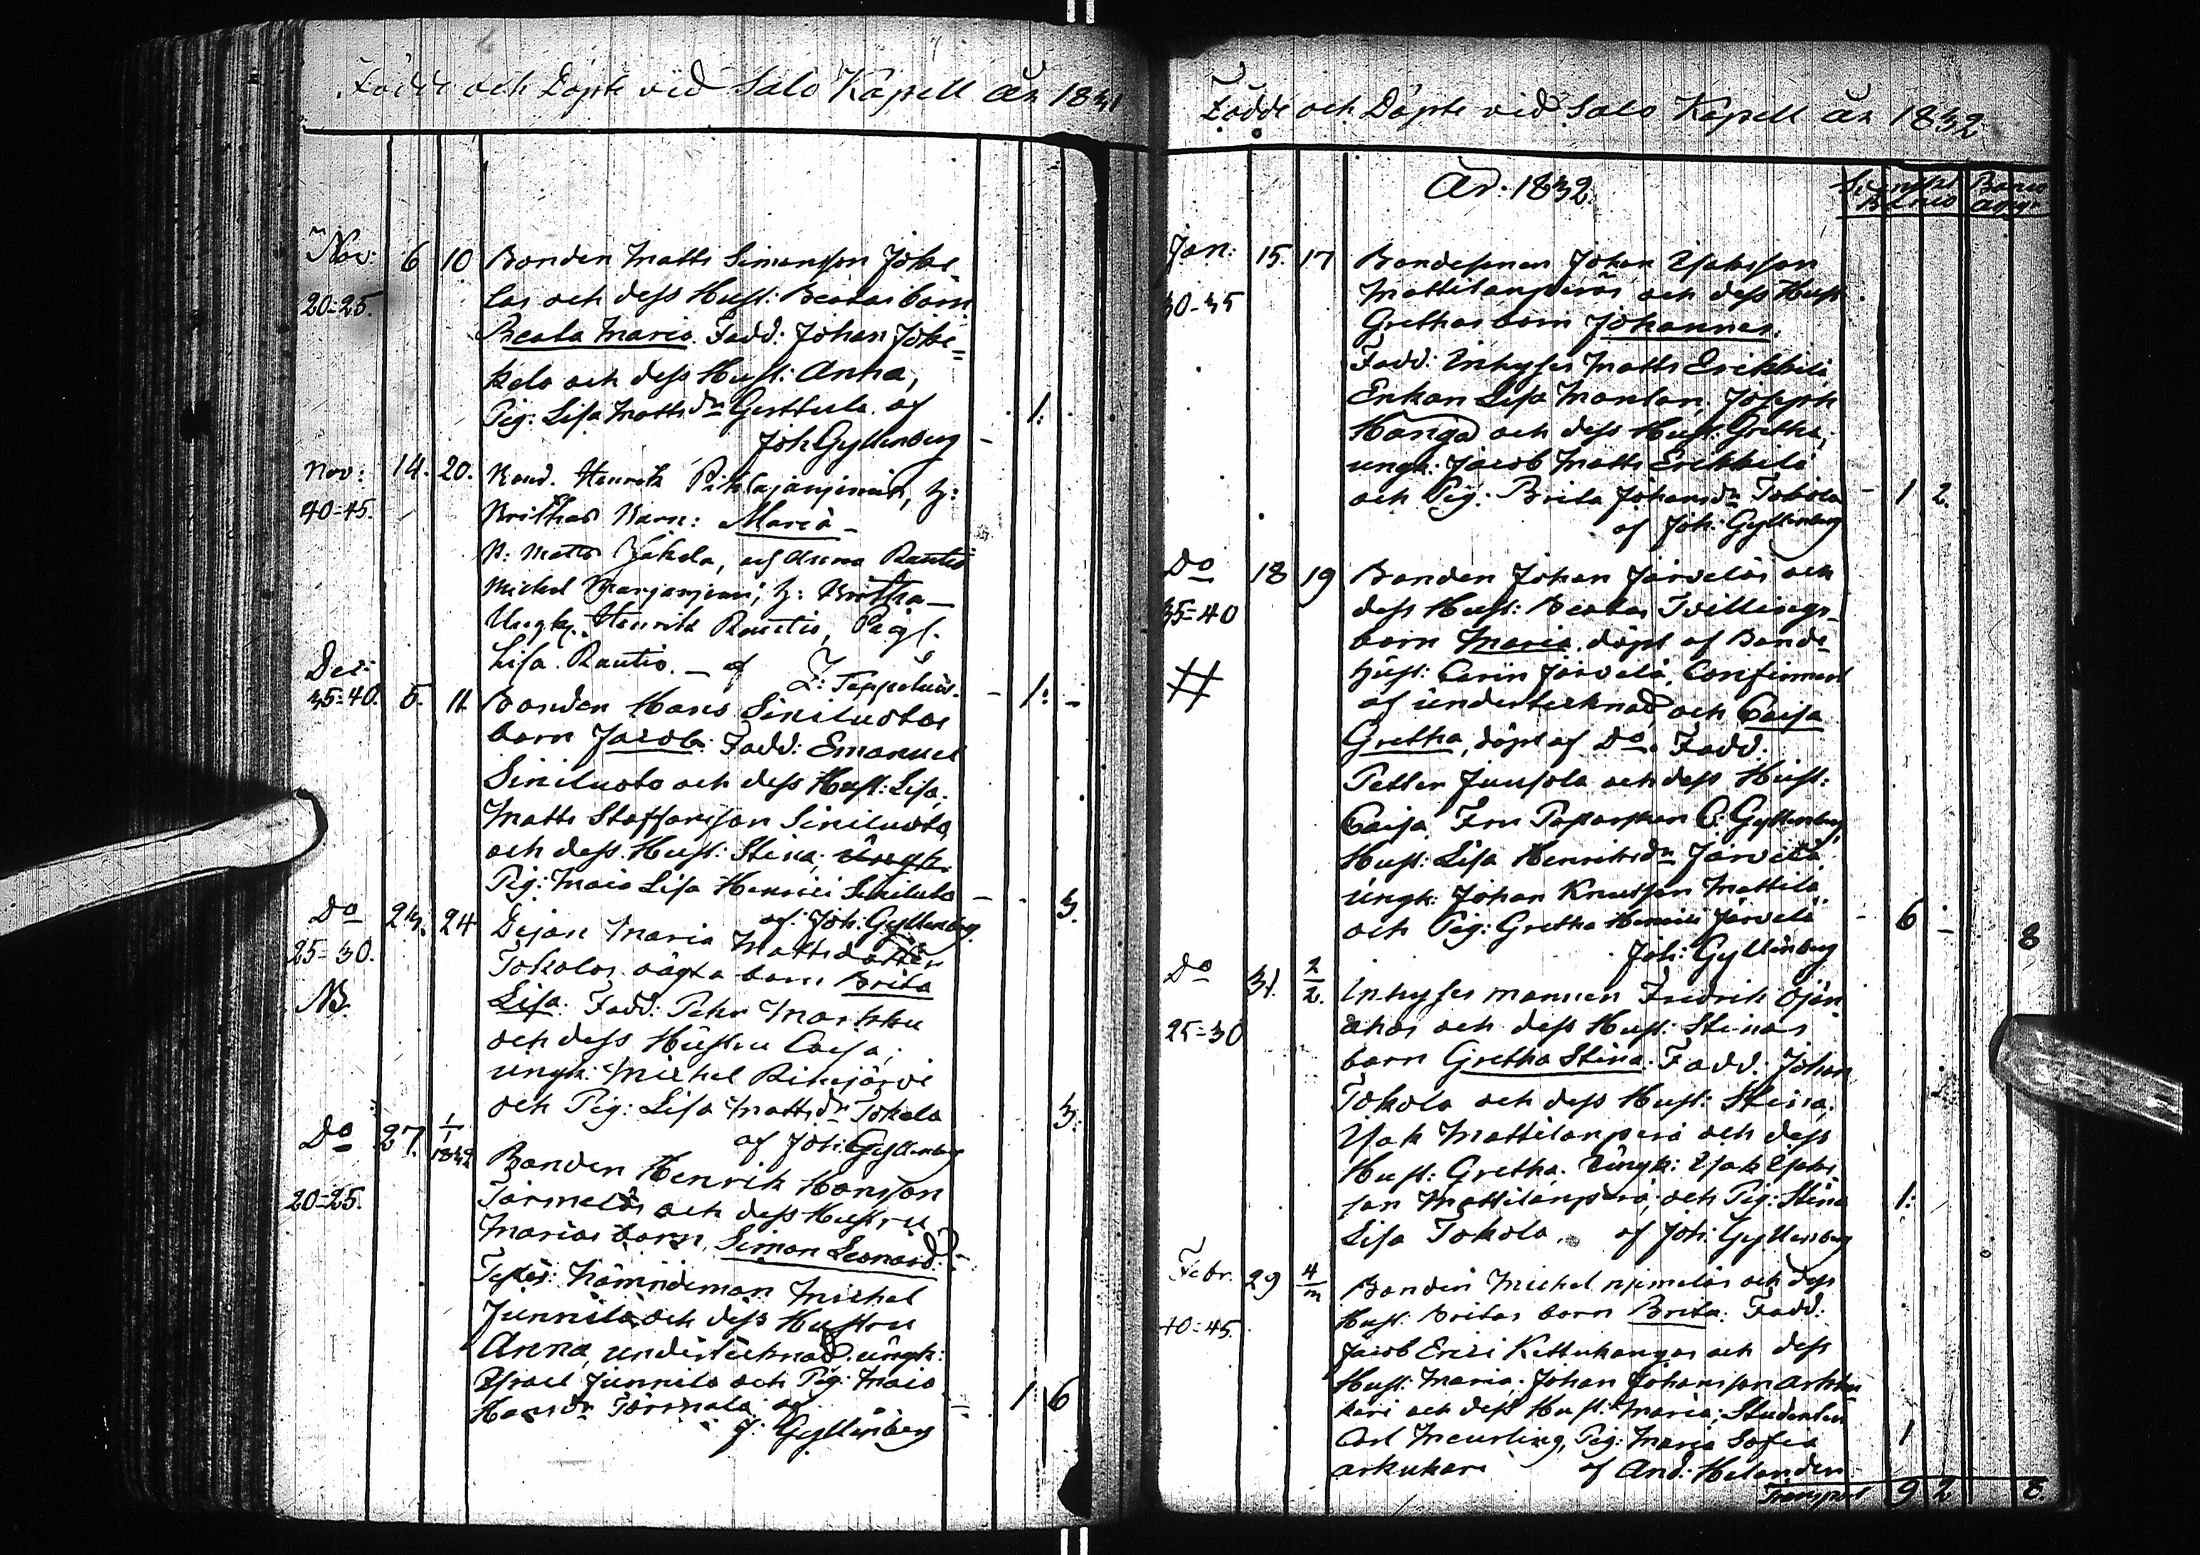 Födde och Döpte vid Salo Kapell År 1831
Nov: 6 10 Bonden Matts Simonsson Joke-
20-25. las och dess Hust: Beatas barn
Beata Maria. Fadd: Johan Joke-
kela och dess Hust: Anna,
Pig: Lisa Mattsdr Gerttula. af 1:
Joh Gyllenberg
Nov: 14. 20. Bond. Henrik H:
40-45. Brithas Barn: Maria -
B: Matts Jokela, och Anna Rautio
Michel H: Britha -
Ungk. Henrik Rautio, Pig.
Lisa Rautio. - af 1: -
Dec:
35-40. 5. 11. Bonden Hans Siniluotos
barn Jacob: Fadd: Emanuel
Siniluoto och dess Hust: Lisa,
Matts Staffansson Siniluoto
och dess Hust: Stina,
Pig: Maria Lisa Henrici Siniluoto 3.
af: Joh: Gyllenberg.
Do 23. 24 Dejan Maria Mattsdotter
25-30. Tokolas oägta barn Brita
NB. Lisa. Fadd: Pehr Markku
och dess Hustru Caisa;
ungk: Michel
och Pig: Lisa Mattsdr Tokola 3.
af Joh: Gyllenberg
Do 27. 1/1 1832 Bonden Henrik Hansson
20-25. Törmeläs och dess Hustru
Marias barn, Simon Leonard:
Testes: Nämndeman Michel
Junnila och dess Hustru
Anna, undertecknad. ungk:
Israel Junnila och Pig: Maria
Hansdr Törmälä af 1 6
J: Gyllenberg
Födde och Döpte vid Salo Kapell År 1832
År 1832.
Jan: 15. 17 Bondesonen Johan Isaksson
30-35 Mattilanperäs och dess Hust:
Grethas barn Johannes.
Fadd: Inhyses Matts Erikkilä
Enkan Lisa Joseph
Kanga och dess Hust: Gretha;
ungk: Jacob Matts Erikkilä
och Pig: Brita Johansdr Tokola 1 2.
af Joh: Gyllenberg
Do 18 19 Bonden Johan Järveläs och
35-40 dess Hust: Beatas Tvillings-
barn Maria döpt af Bonde-
# hust: Carin Järvelä, Confirmerad
af undertecknad och Caisa
Gretha, döpt af Do. Fadd:
Petter Juusola och dess Hust:
Caisa, Fru C: Gyllenberg,
Hust: Lisa Henriksdr Järvelä
ungk: Johan Knutsson Mattila
och Pig: Gretha Henrici Järvelä 6 - 8
Joh: Gyllenberg
Do 31. 2/2. Inhyses mannen Fredrik Ojan-
25-30 ahos och dess Hust: Stinas
barn Gretha Stina. Fadd: Johan
Tokola och dess Hust: Stina;
Isak Mattilanperä och dess
Hust: Gretha. Ungk: Isak Isaks
son Mattilanperä, och Pig: Stina 1:
Lisa Tokola. af Joh: Gyllenberg
Febr. 29 4/m Bonden Michel och dess
40-45. Hust: Britas barn Brita: Fadd:
Jacob Erici Kettukangas och dess
Hust: Maria; Johan Johansson Arkku
kari och dess Hust: Maria; Studenten
Carl Meurling, Pig: Maria Sofia 1
arkukari af And: Helander
Transport 9 2 8.